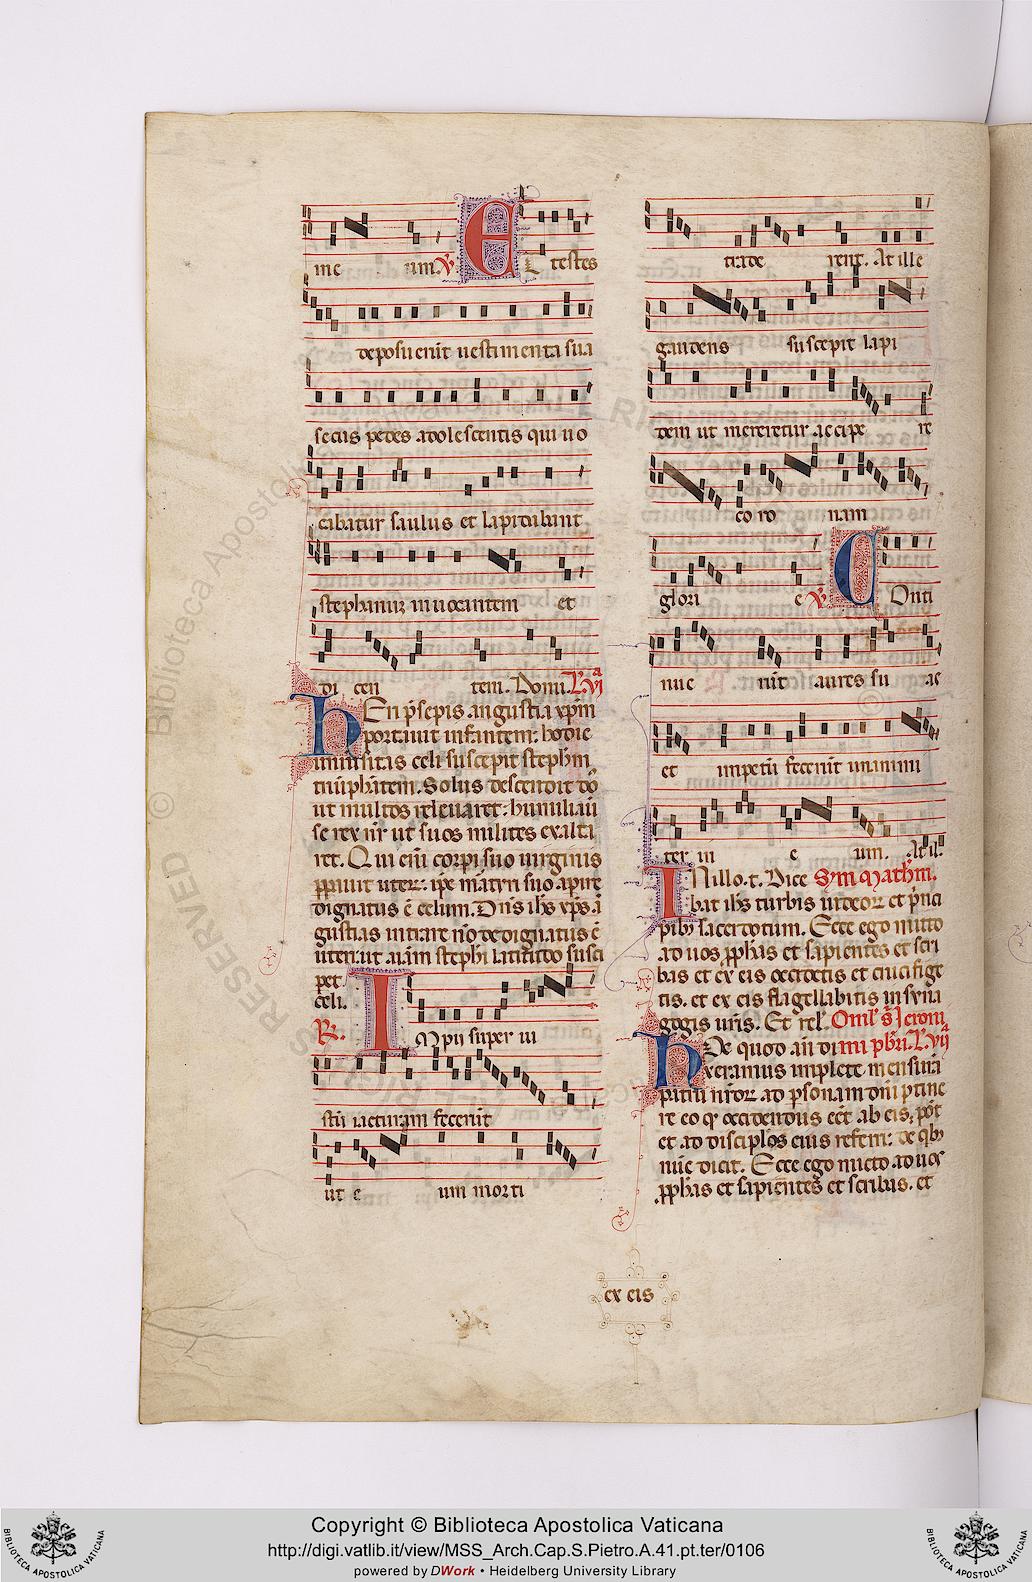 me um. ℣. Et testes
deposuerūt uestimenta sua
secus pedes adolescentis qui uo
cabatur saulus et lapidabant
stephanuz inuocantem et
di cen tem. Domi. L. vi
HEri p̄sepis angustia xp̄m
portauit infantem: hodie
inmēsitas celi suscepit steph̄m
triūphātem. Solus descendit dn̄s
ut multos releuaret: humiliauit
se rex nr̄ ut suos milites exalta
ret. Qui
dignatus ē celum. Dn̄s ihs xp̄s ā
gustias intrare nō dedignatus ē
uteri: ut aīam stephī latitudo susci
pet
celi.
℟. IMpii super iu
stū iacturam fecerūt
ut e um morti
trade rent. At ille
gaudens suscepit lapi
dem ut mereretur accipe re
coro nam
glori e ℣. Conti
nue rūt aures su as
et impetū fecerūt unanimi
ter in e um. At il.
INillo. t. Dice Scd̄m Math̄m.
bat ihs turbis iudeoꝝ et p̄nci
pibꝫ sacerdotum. Ecce ego mitto
ad uos ꝓph̄as et sapientes et scri
bas et ex eis occidetis et crucifige
tis. et ex eis flagellabitis in syna
gogis uris. Et rel. Omīl. s. Ieroni
HOc quod añ di mi pbr̄i. L. vii
xeramus implete mensurā
patrū ur̄oꝝ ad ꝑsonam dn̄i ptine
re eo qꝫ occidendus eēt ab eis: pōt
et ad disciplos eius referri: de qbꝫ
nūc dicit. Ecce ego mitto ad uos
ꝓph̄as et sapientes et scribas. et
ex eis
© Biblioteca Apostolica Vaticana
Copyright © Biblioteca Apostolica Vaticana
http://digi.vatlib.it/view/MSS_Arch.Cap.S.Pietro.A.41.pt.ter/0106
powered by DWork • Heidelberg University Library
BIBLIOTECA APOSTOLICA VATICANA
BIBLIOTECA APOSTOLICA VATICANA